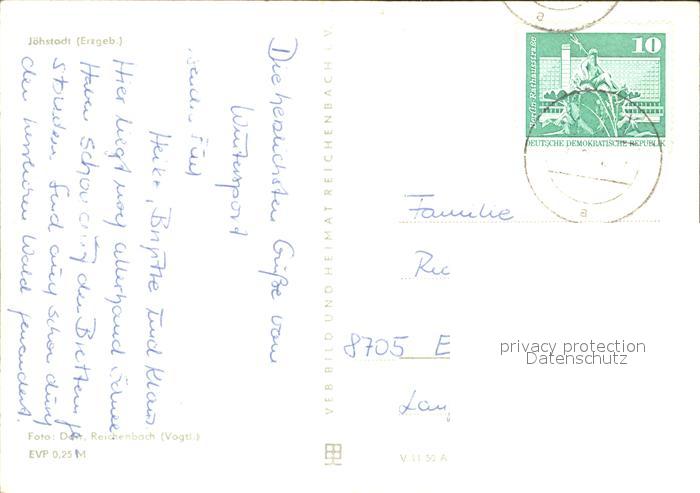 Jöhstadt (Erzgeb.)
Die herzlichsten Grüße vom
Wintersport
senden Euch
Heike, Brigitte und Klaus.
Hier liegt noch allerhand Schnee.
Haben schon auf den Brettern ge-
standen. Sind auch schon durch
den herrlichen Wald gewandert.
Foto: Darr, Reichenbach (Vogtl.)
EVP 0,25 M
VEB BILD UND HEIMAT REICHENBACH I. V.
V 11 50 A
Berlin-Rathausstraße
10
DEUTSCHE DEMOKRATISCHE REPUBLIK
a
a
Familie
8705 E
privacy protection
Datenschutz